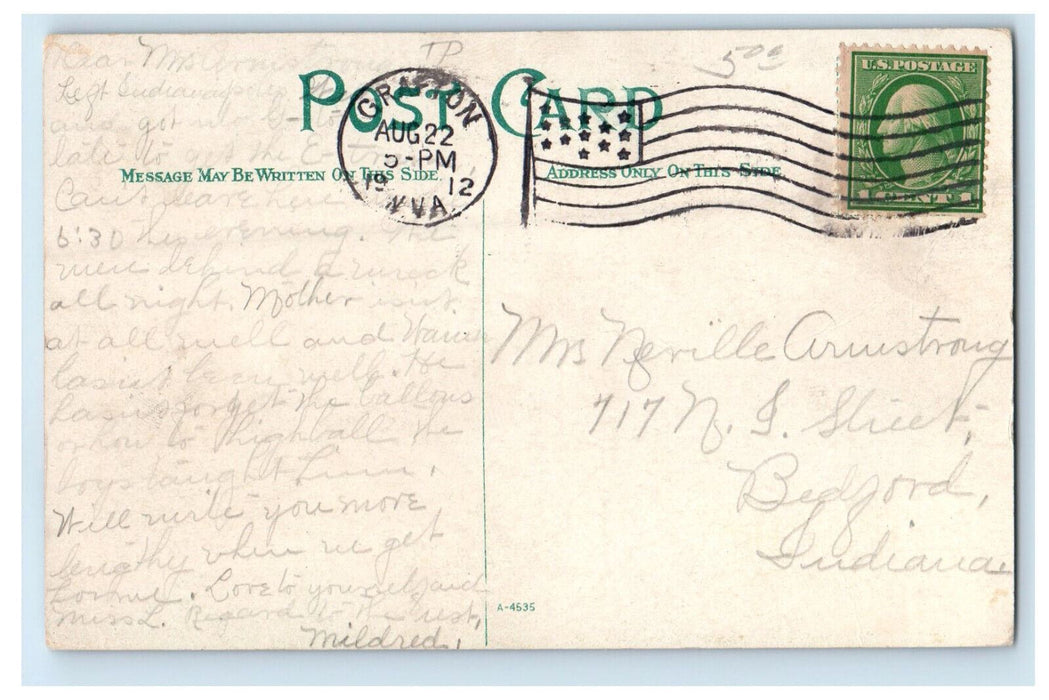 Dear Mrs Armstrong
TP
500
U.S. POSTAGE
Left Indianapolis
POST CARD
GRAFTON
AUG 22
5-PM
1912
W.VA.
and got
late to get the
MESSAGE MAY BE WRITTEN ON THIS SIDE.
ADDRESS ONLY ON THIS SIDE
Can't leave here
6:30 this evening. The
were behind a wreck
all night. Mother isn't
at all well and
hasn't been well. He
hasn't forget the ballons
or how to highball the
boys taught him.
Will write you more
lengthy when we get
home. Love to yourself and
Miss L. Regard to the rest,
Mildred.
Mrs Neville Armstrong
717 N. I. Street,
Bedford,
Indiana
A-4535